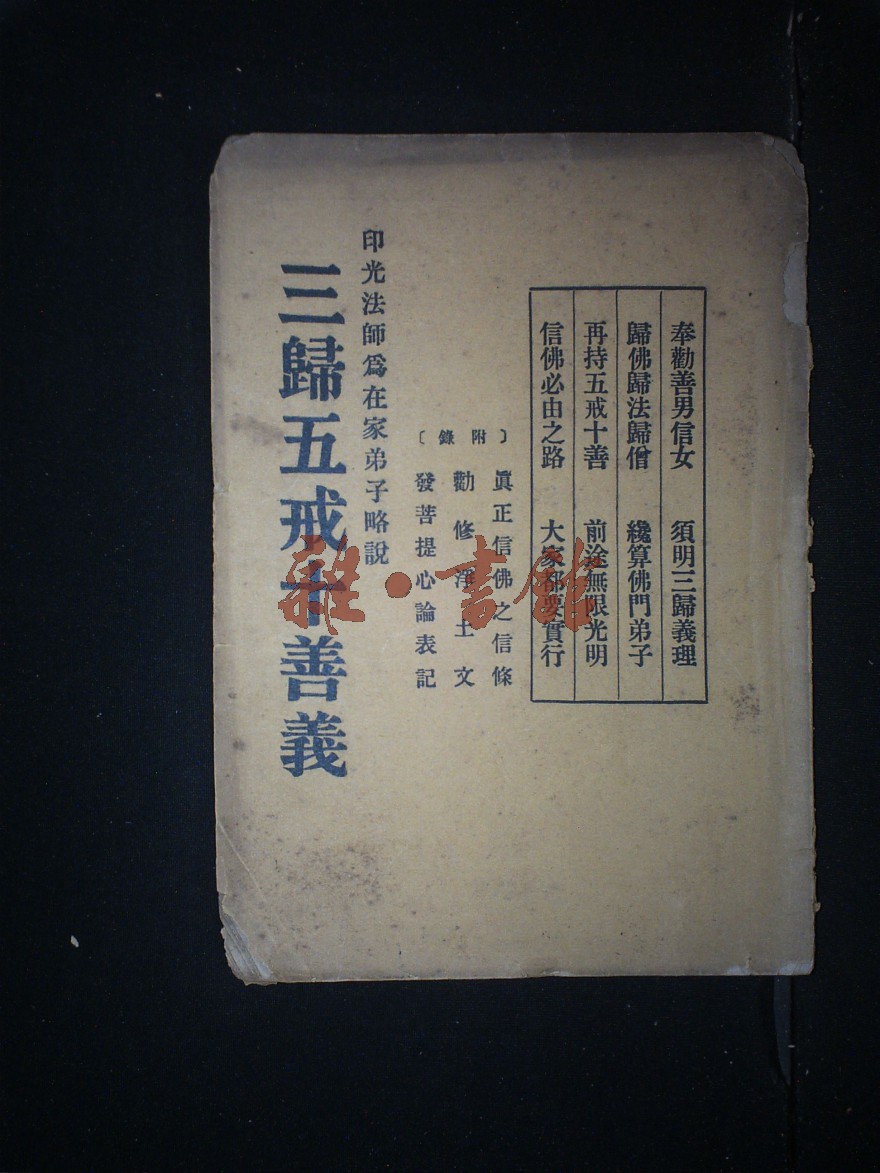 奉勸善男信女　須明三歸義理
歸佛歸法歸僧　纔算佛門弟子
再持五戒十善　前途無限光明
信佛必由之路　大家都要實行
〔附錄〕
眞正信佛之信條
勸修淨土文
發菩提心論表記
印光法師爲在家弟子略說
三歸五戒十善義
雜·書館